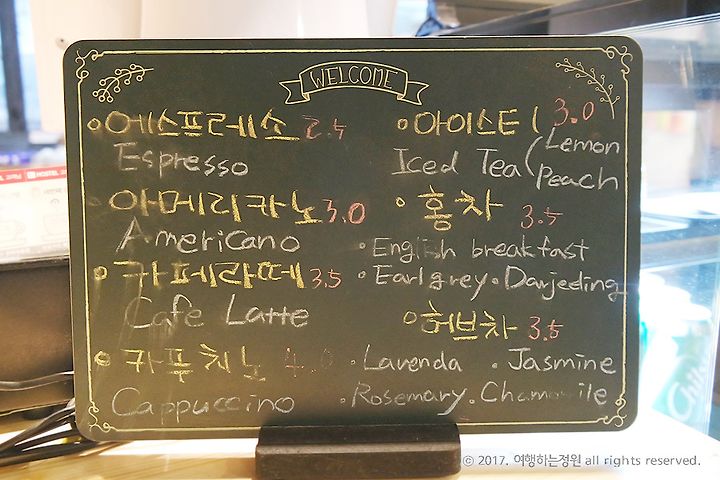 WELCOME
에스프레소 2.5
Espresso
아메리카노 3.0
Americano
카페라떼 3.5
Cafe Latte
카푸치노 4.0
Cappuccino
아이스티 3.0
Iced Tea (Lemon
Peach
홍차 3.5
• English breakfast
• Earlgrey • Darjeeling
허브차 3.5
• Lavenda • Jasmine
• Rosemary • Chamomile
ⓒ 2017. 여행하는정원 all rights reserved.